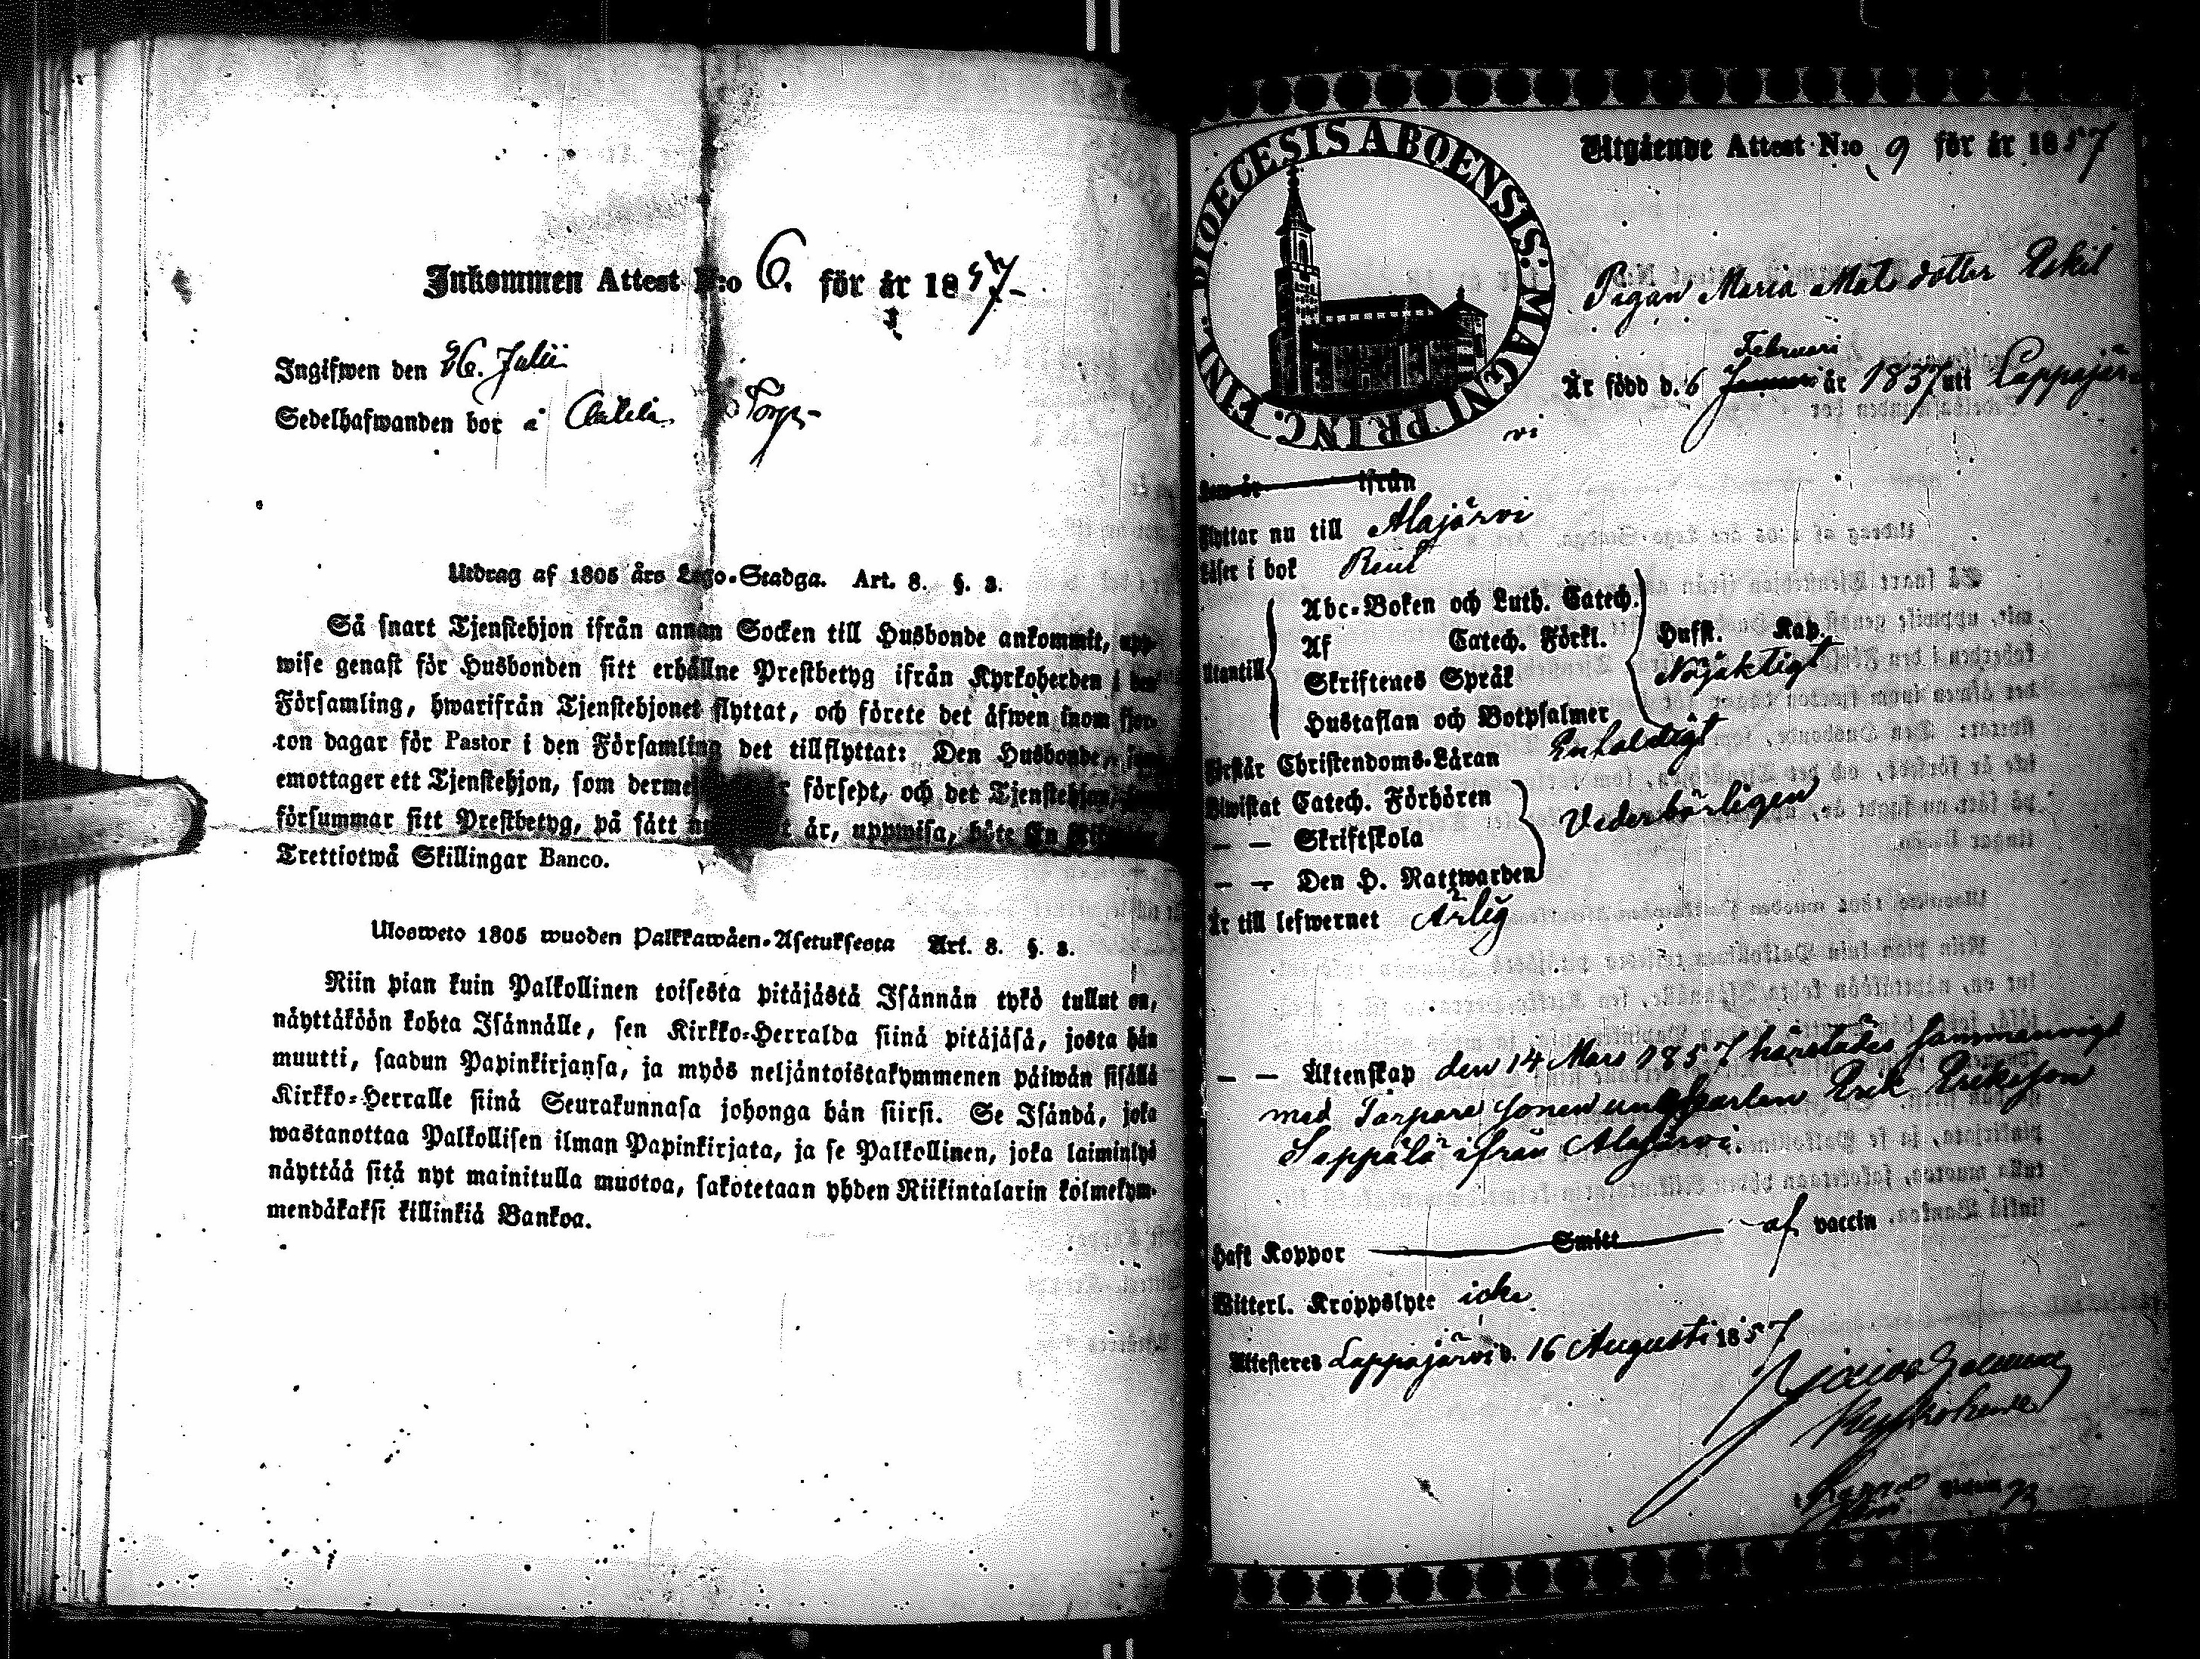 Inkommen Attest N:o 6. för år 1857
Ingifwen den 26. Julii
Sedelhafwanden bor å Torp
Utdrag af 1805 års Lego-Stadga. Art. 8. §. 3.
Så snart Tjenstehjon ifrån annan Socken till Husbonde ankommit, upp-
wise genast för Husbonden sitt erhållne Prestbetyg ifrån Kyrkoherden i den
Församling, hwarifrån Tjenstehjonet flyttat, och förete det äfwen inom fjor-
ton dagar för Pastor i den Församling det tillflyttat: Den Husbonde, som
emottager ett Tjenstehjon, som dermed försedt, och det Tjenstehjon, som
försummar sitt Prestbetyg, på sätt är, uppwisa, böte En
Trettiotwå Skillingar Banco.
Ulosweto 1805 wuoden Palkkawäen-Asetuksesta Art. 8. §. 3.
Niin pian kuin Palkollinen toisesta pitäjästä Isännän tykö tullut on,
näyttäköön kohta Isännälle, sen Kirkko-Herralda siinä pitäjäsä, josta hän
muutti, saadun Papinkirjansa, ja myös neljäntoistakymmenen päiwän sisällä
Kirkko-Herralle siinä Seurakunnasa johonga hän siirsi. Se Isändä, joka
wastanottaa Palkollisen ilman Papinkirjata, ja se Palkollinen, joka laiminlyö
näyttää sitä nyt mainitulla muotoa, sakotetaan yhden Riikintalarin kolmekym-
mendäkaksi killinkiä Bankoa.
DIOECESIS ABOENSIS. MAGNI PRINC. FINL.
Utgående Attest N:o 9 för år 1857
Pigan Maria Mats dotter Eskil
Februari
Är född d. 6 år 1837 uti Lappajär-
vi
ifrån
flyttar nu till Alajärvi
läser i bok Rent
Abc-Boken och Luth. Catech.
Af Catech. Förkl. Husft. Kap.
Utantill Skriftenes Språk Nöjaktigt
Hustaflan och Botpsalmer
Förstår Christendoms-Läran Enfaldigt
Biwistat Catech. Förhören
— — Skriftskola Vederbörligen
— — Den H. Nattwarden
Är till lefwernet Ärlig
— — Äktenskap den 14 Mars 1857 härstädes sammanvigd
med Torpare sonen ungkarlen Erik Eriksson
Sappälä ifrån Alajärvi.
Haft Koppor Smitt af vaccin
Witterl. Kroppslyte icke
Attesteres Lappajärvi d. 16 Augusti 1857
Kyrkoherde